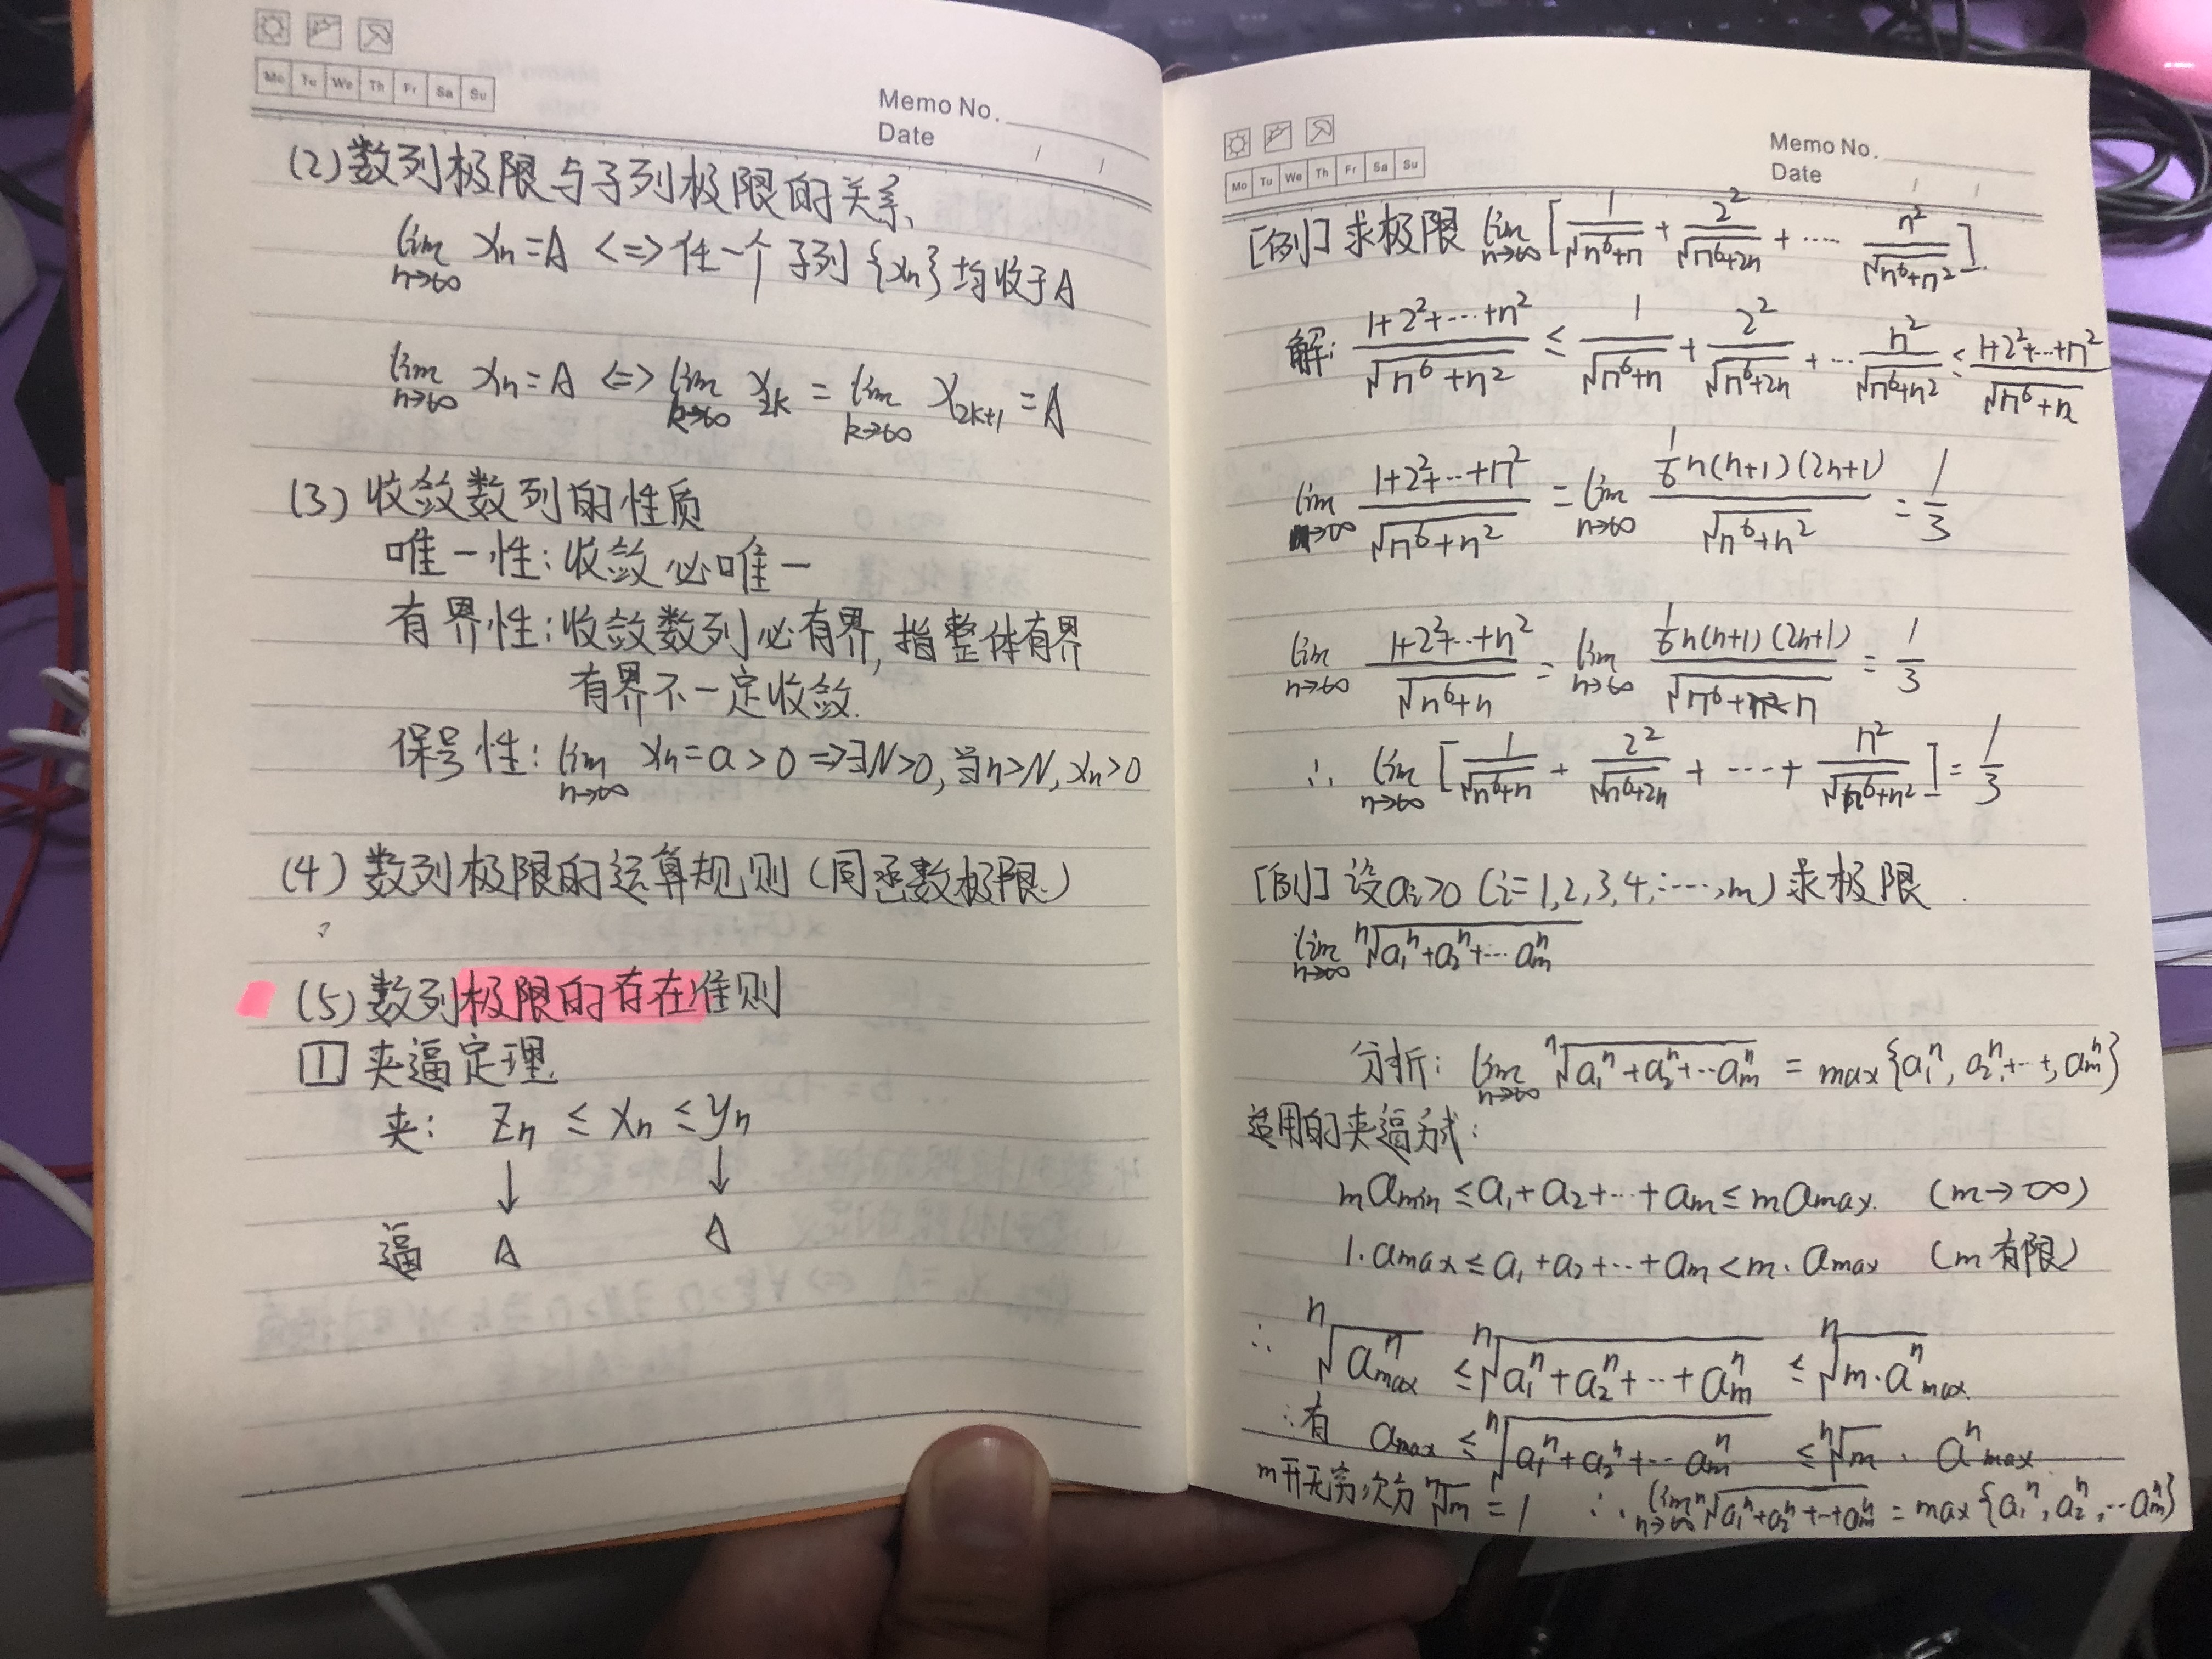 Mo Tu We Th Fr Sa Su
Memo No.
Date / /
(2) 数列极限与子列极限的关系
lim n→∞ xn = A <=> 任一个子列{xn}均收于A
lim n→∞ xn = A <=> lim k→∞ x2k = lim k→∞ x2k+1 = A
(3) 收敛数列的性质
唯一性: 收敛必唯一
有界性: 收敛数列必有界, 指整体有界
有界不一定收敛.
保号性: lim n→∞ xn = a > 0 => ∃N>0, 当n>N, xn>0
(4) 数列极限的运算规则 (同函数极限)
(5) 数列极限的存在准则
1 夹逼定理
夹: Zn ≤ Xn ≤ yn
↓ ↓
逼 A A
Mo Tu We Th Fr Sa Su
Memo No.
Date / /
[例] 求极限 lim n→∞ [1/√(n^6+n) + 2^2/√(n^6+2n) + ···· n^2/√(n^6+n^2)].
解: (1+2^2+···+n^2)/√(n^6+n^2) ≤ 1/√(n^6+n) + 2^2/√(n^6+2n) + ··· n^2/√(n^6+n^2) ≤ (1+2^2+···+n^2)/√(n^6+n)
lim n→∞ (1+2^2+···+n^2)/√(n^6+n^2) = lim n→∞ (1/6 n(n+1)(2n+1))/√(n^6+n^2) = 1/3
lim n→∞ (1+2^2+···+n^2)/√(n^6+n) = lim n→∞ (1/6 n(n+1)(2n+1))/√(n^6+n) = 1/3
∴ lim n→∞ [1/√(n^6+n) + 2^2/√(n^6+2n) + ····+ n^2/√(n^6+n^2)] = 1/3
[例] 设ai>0 (i=1,2,3,4,····,m) 求极限.
lim n→∞ ⁿ√(a1^n+a2^n+···am^n)
分析: lim n→∞ ⁿ√(a1^n+a2^n+···am^n) = max{a1^n, a2^n,+··+, am^n}
适用的夹逼方式:
m amin ≤ a1+a2+···+am ≤ m amax. (m→∞)
1·amax ≤ a1+a2+···+am < m·amax (m有限)
∴ ⁿ√(amax^n) ≤ ⁿ√(a1^n+a2^n+··+am^n) ≤ ⁿ√(m·amax^n)
∴有 amax ≤ ⁿ√(a1^n+a2^n+···am^n) ≤ ⁿ√m · a^n max
m开无穷次方 ⁿ√m = 1 ∴ lim n→∞ ⁿ√(a1^n+a2^n+··+am^n) = max{a1^n, a2^n, ···am^n}